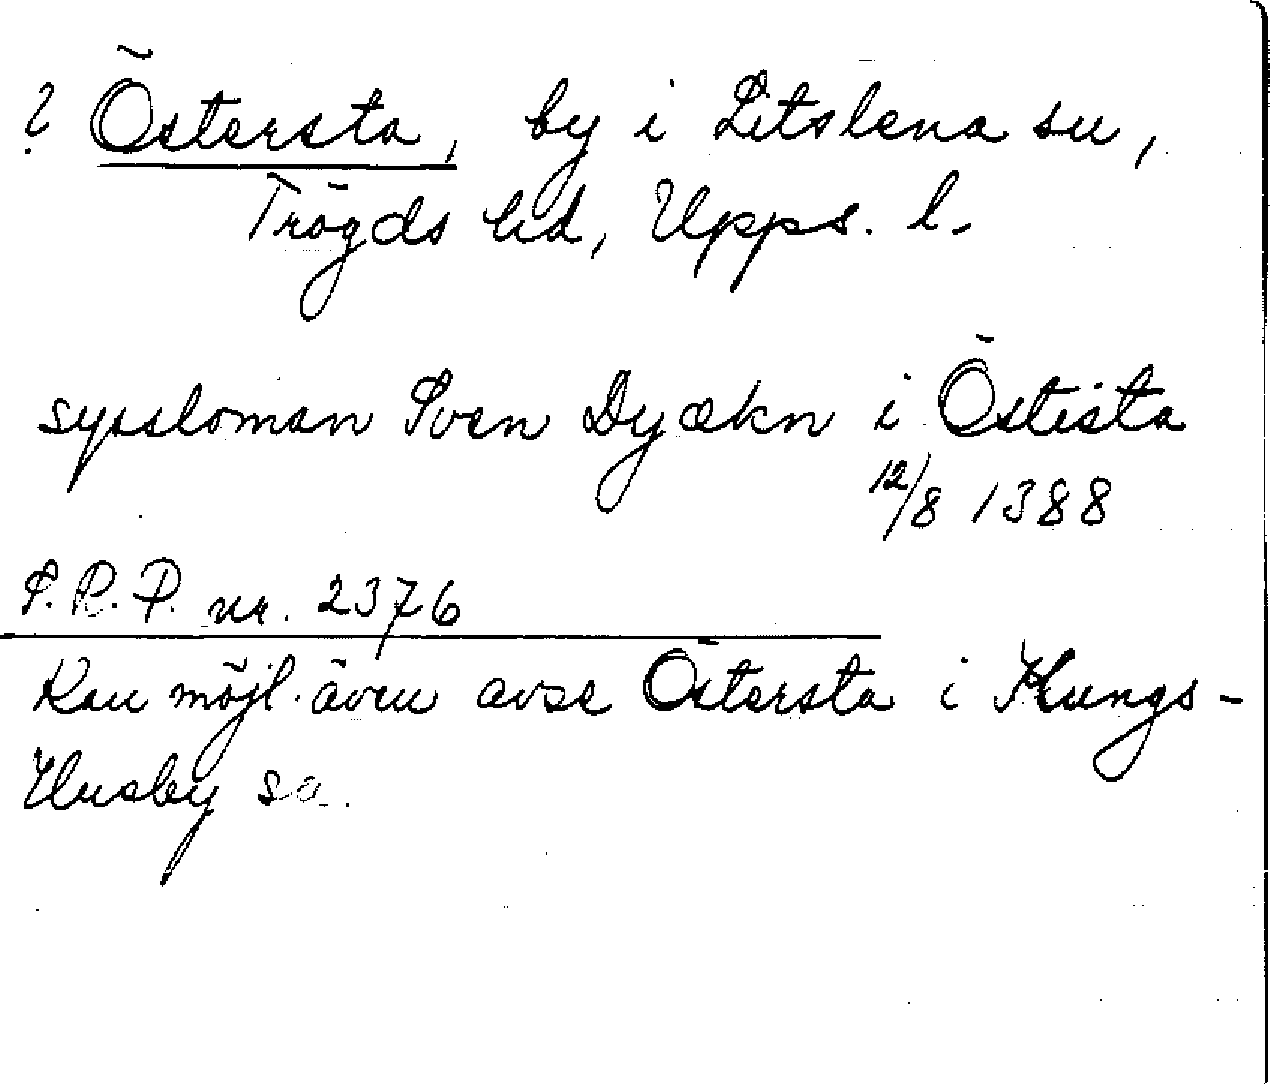 ? Östersta, by i Litslena sn,
Trögds hd, Upps. l.
syssloman Sven Dyækn i Östista
12/8 1388
S.R.P. nr. 2376
Kan möjl. även avse Östersta i Kungs-
Husby sn.